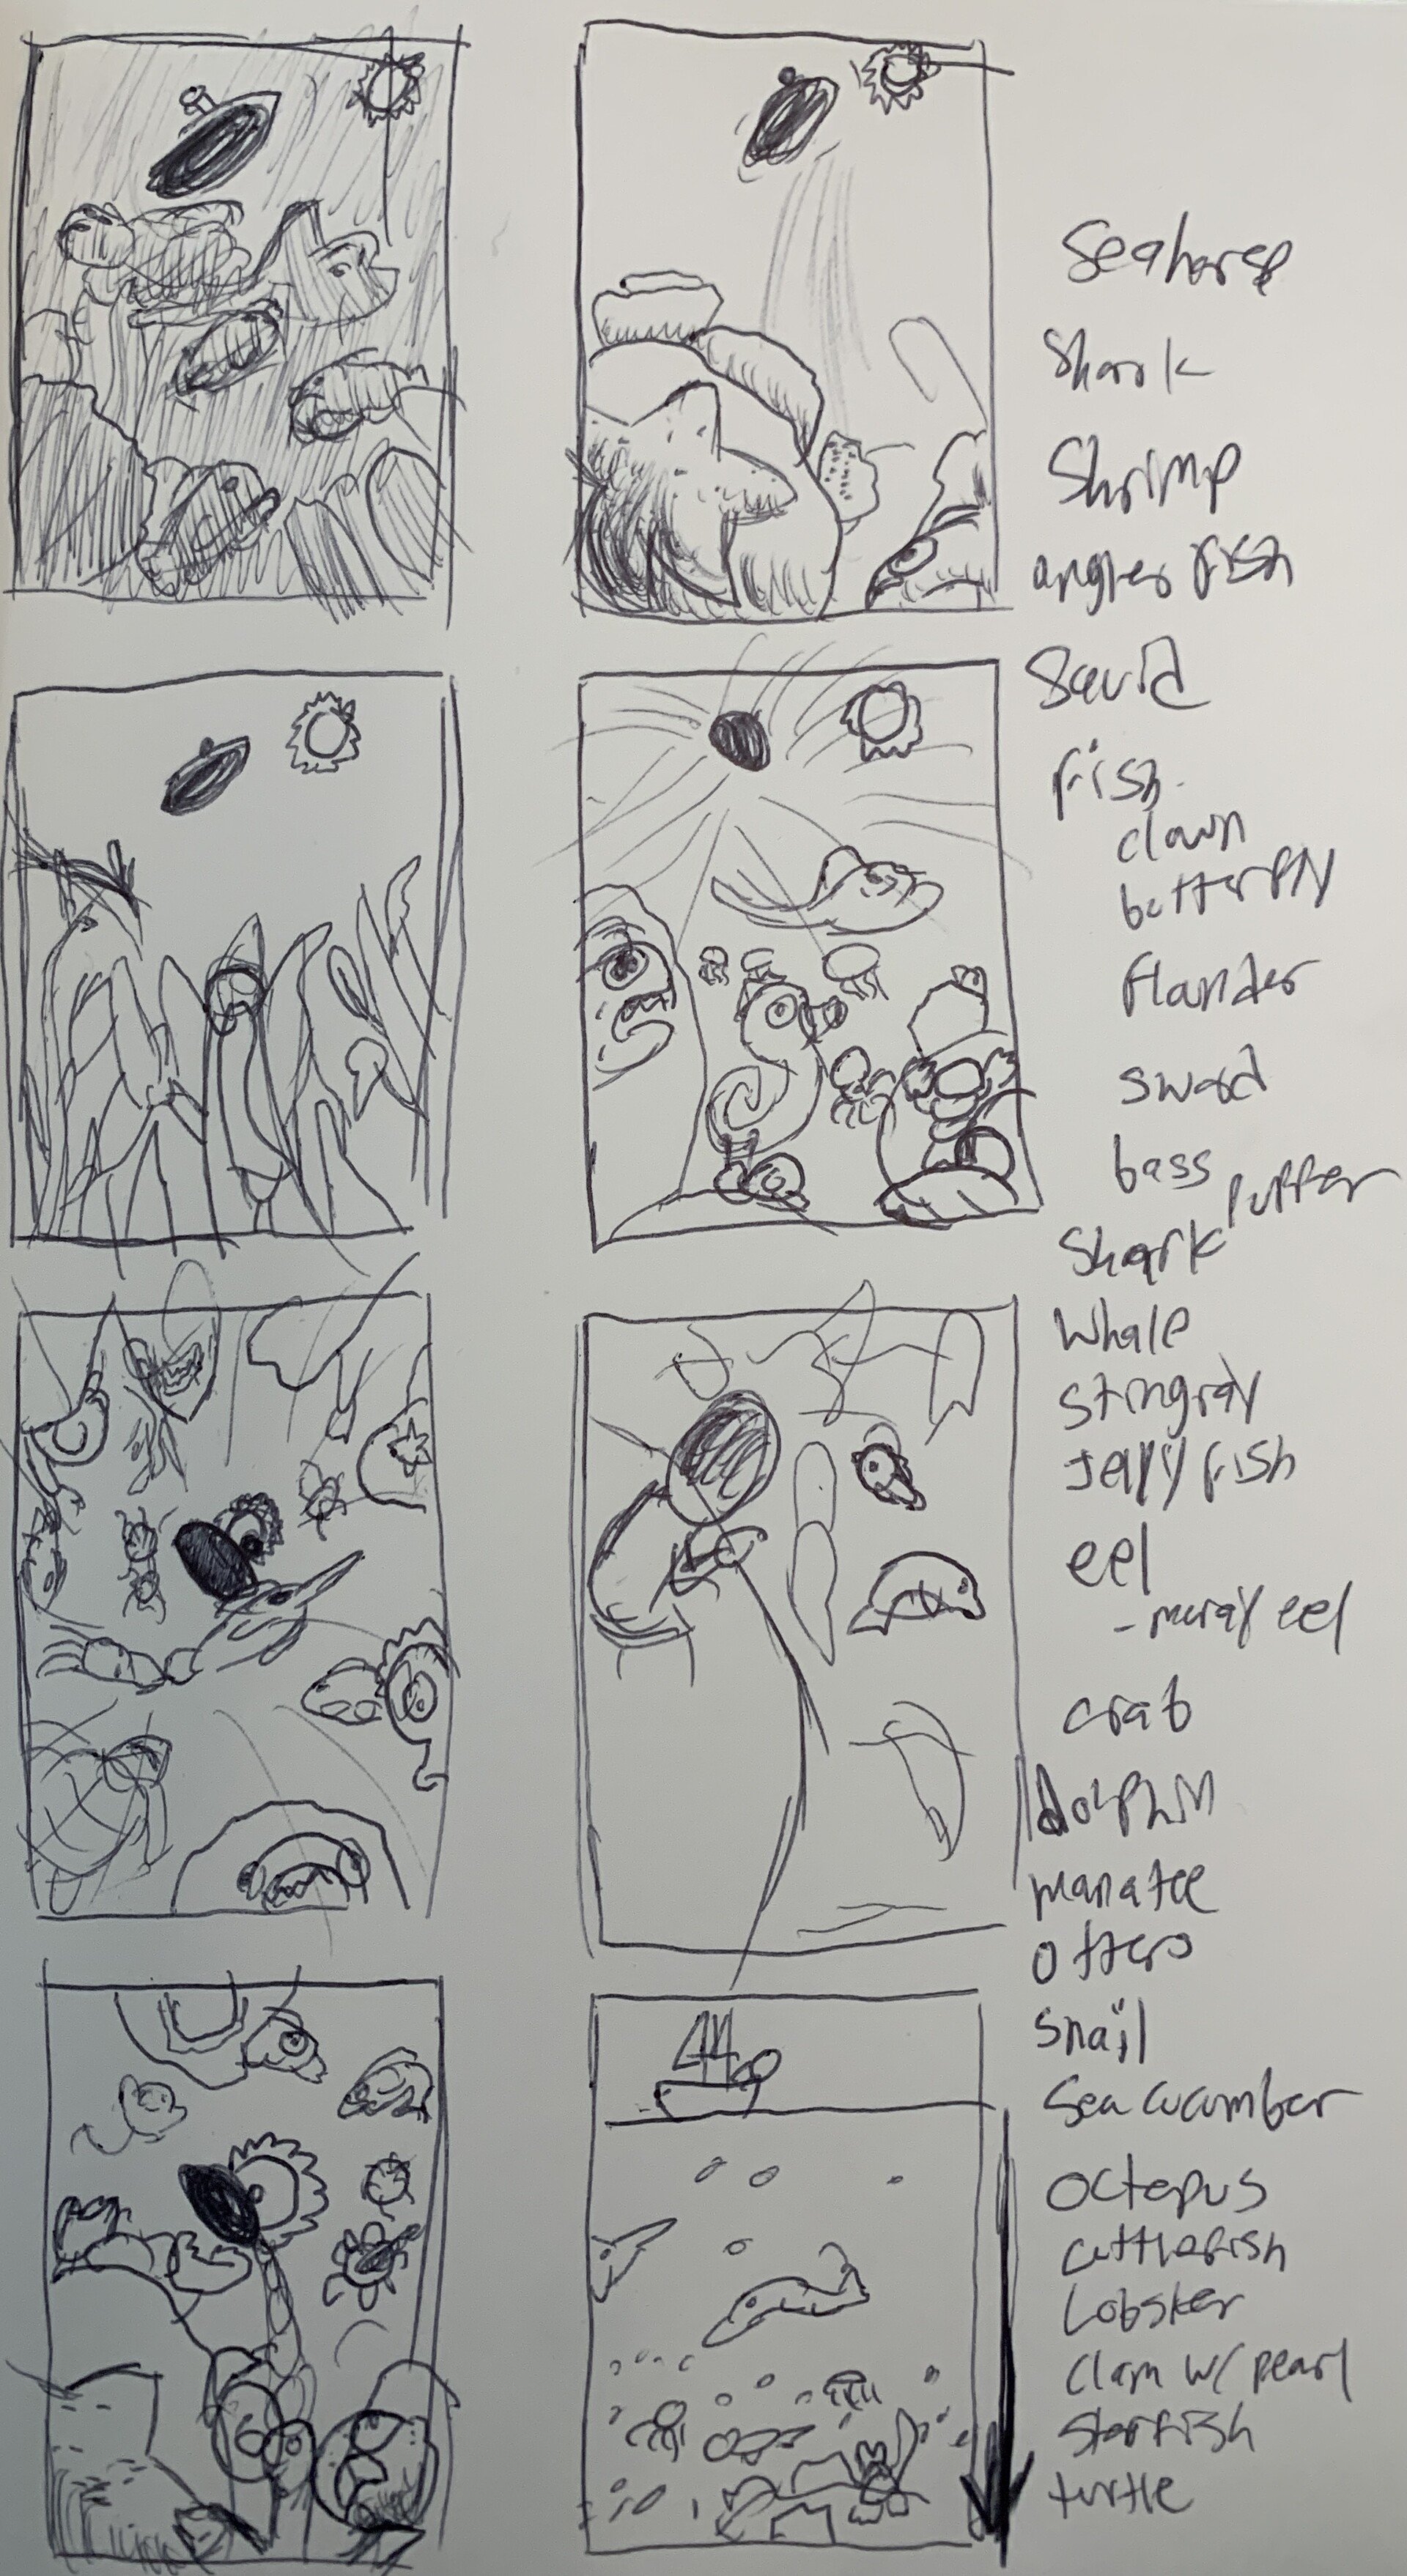 Seahorse
Shark
Shrimp
angler fish
Squid
fish
clown
butterfly
flounder
sword
bass
puffer
Shark
Whale
stingray
Jelly fish
eel
- moray eel
crab
dolphin
manatee
otters
snail
sea cucumber
octopus
cuttlefish
Lobster
clam w/ pearl
starfish
turtle